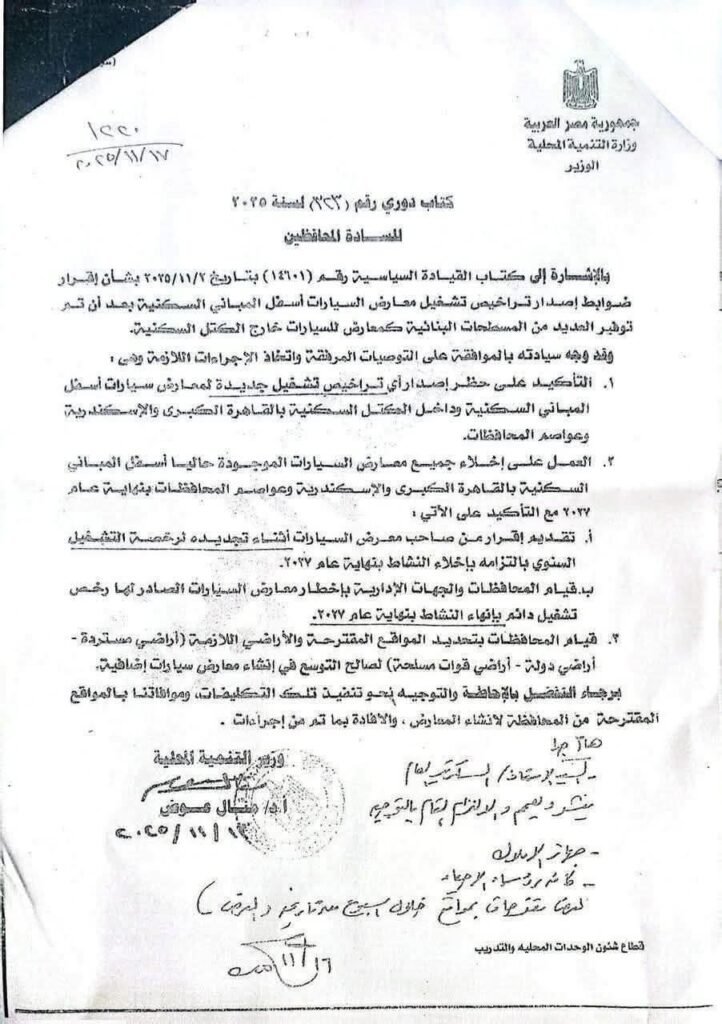 جمهورية مصر العربية
وزارة التنمية المحلية
الوزير
١٢٢٠
٢٠٢٥/١١/١٧
كتاب دوري رقم (٣٢٣) لسنة ٢٠٢٥
للسادة المحافظين
بالإشارة إلى كتاب القيادة السياسية رقم (١٤٦٠١) بتاريخ ٢٠٢٥/١١/٢ بشأن إقرار
ضوابط إصدار تراخيص تشغيل معارض السيارات أسفل المباني السكنية بعد أن تم
توفير العديد من المسطحات البنائية كمعارض للسيارات خارج الكتل السكنية.
وقد وجه سيادته بالموافقة على التوصيات المرفقة واتخاذ الإجراءات اللازمة وهى:
١. التأكيد على حظر إصدار أي تراخيص تشغيل جديدة لمعارض سيارات أسفل
المباني السكنية وداخل الكتل السكنية بالقاهرة الكبرى والإسكندرية
وعواصم المحافظات.
٢. العمل على إخلاء جميع معارض السيارات الموجودة حاليا أسفل المباني
السكنية بالقاهرة الكبرى والإسكندرية وعواصم المحافظات بنهاية عام
٢٠٢٧ مع التأكيد على الآتي:
أ. تقديم إقرار من صاحب معرض السيارات أثناء تجديده لرخصة التشغيل
السنوي بالتزامه بإخلاء النشاط بنهاية عام ٢٠٢٧.
ب. قيام المحافظات والجهات الإدارية بإخطار معارض السيارات الصادر لها رخص
تشغيل دائم بإنهاء النشاط بنهاية عام ٢٠٢٧.
٣. قيام المحافظات بتحديد المواقع المقترحة والأراضي اللازمة (أراضي مستردة -
أراضي دولة - أراضي قوات مسلحة) لصالح التوسع في إنشاء معارض سيارات إضافية.
برجاء التفضل بالإحاطة والتوجيه نحو تنفيذ تلك التكليفات، وموافاتنا بالمواقع
المقترحة من المحافظة لانشاء المعارض، والافادة بما تم من إجراءات.
وزير التنمية المحلية
أ.د/ منال عوض
٢٠٢٥/١١/١٣
هام جدا
- السيد الاستاذ/ السكرتير العام
ينشر ويعمم والالتزام التام بالتوجيه
- جهاز الاملاك
- كافة رؤساء الاحياء
١١/١٦
قطاع شئون الوحدات المحليه والتدريب